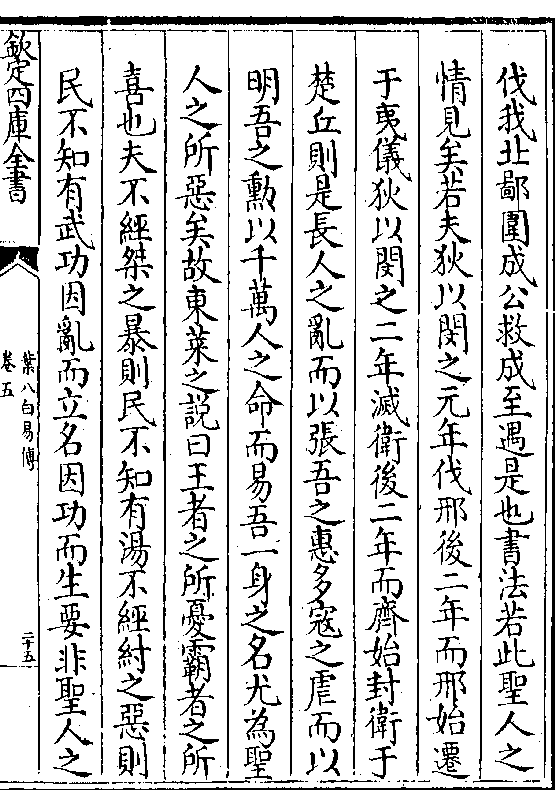 伐我北鄙圍成公救成至遇是也書法若此聖人之
情見矣若夫狄以閔之元年伐邢後二年而邢始遷
于夷儀狄以閔之二年滅衛後二年而齊始封衛于
楚丘則是長人之亂而以張吾之惠多寇之虐而以
明吾之勲以千萬人之命而易吾一身之名尤為聖
人之所惡矣故東萊之說曰王者之所憂霸者之所
喜也夫不經桀之暴則民不知有湯不經紂之惡則
民不知有武功因亂而立名因功而生要非聖人之
欽定四庫全書
葉八白易傳
卷五
二十五